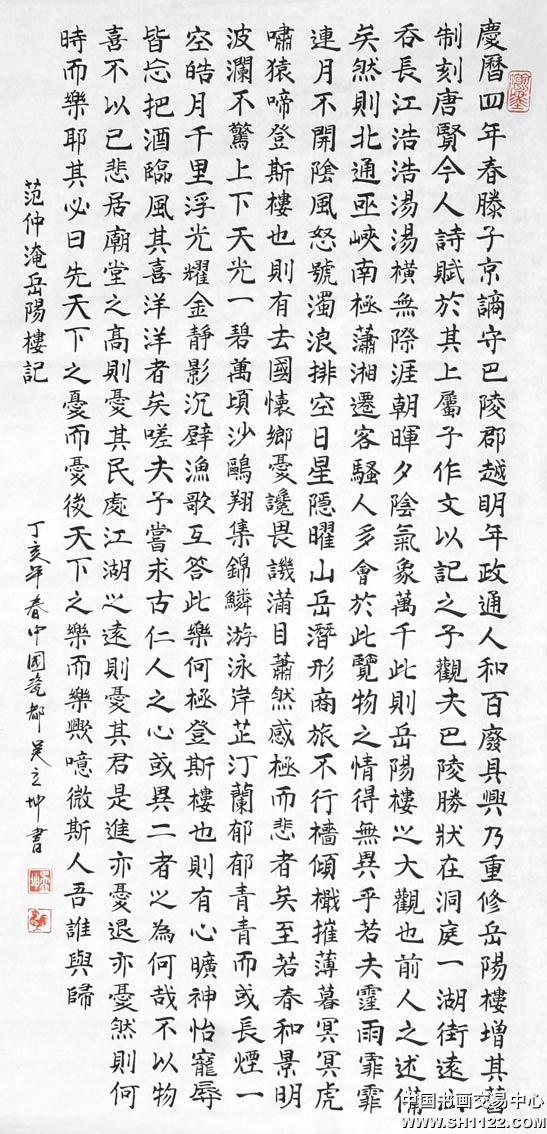 慶曆四年春滕子京謫守巴陵郡越明年政通人和百廢具興乃重修岳陽樓增其舊
制刻唐賢今人詩賦於其上屬予作文以記之予觀夫巴陵勝狀在洞庭一湖銜遠山
吞長江浩浩湯湯橫無際涯朝暉夕陰氣象萬千此則岳陽樓之大觀也前人之述備
矣然則北通巫峽南極瀟湘遷客騷人多會於此覽物之情得無異乎若夫霪雨霏霏
連月不開陰風怒號濁浪排空日星隱曜山岳潛形商旅不行檣傾檝摧薄暮冥冥虎
嘯猿啼登斯樓也則有去國懷鄉憂讒畏譏滿目蕭然感極而悲者矣至若春和景明
波瀾不驚上下天光一碧萬頃沙鷗翔集錦鱗游泳岸芷汀蘭郁郁青青而或長煙一
空皓月千里浮光耀金靜影沉璧漁歌互答此樂何極登斯樓也則有心曠神怡寵辱
皆忘把酒臨風其喜洋洋者矣嗟夫予嘗求古仁人之心或異二者之為何哉不以物
喜不以己悲居廟堂之高則憂其民處江湖之遠則憂其君是進亦憂退亦憂然則何
時而樂耶其必曰先天下之憂而憂後天下之樂而樂歟噫微斯人吾誰與歸
范仲淹岳陽樓記
丁亥年春中國瓷都吴立坤書
中国书画交易中心
www.SH1122.com